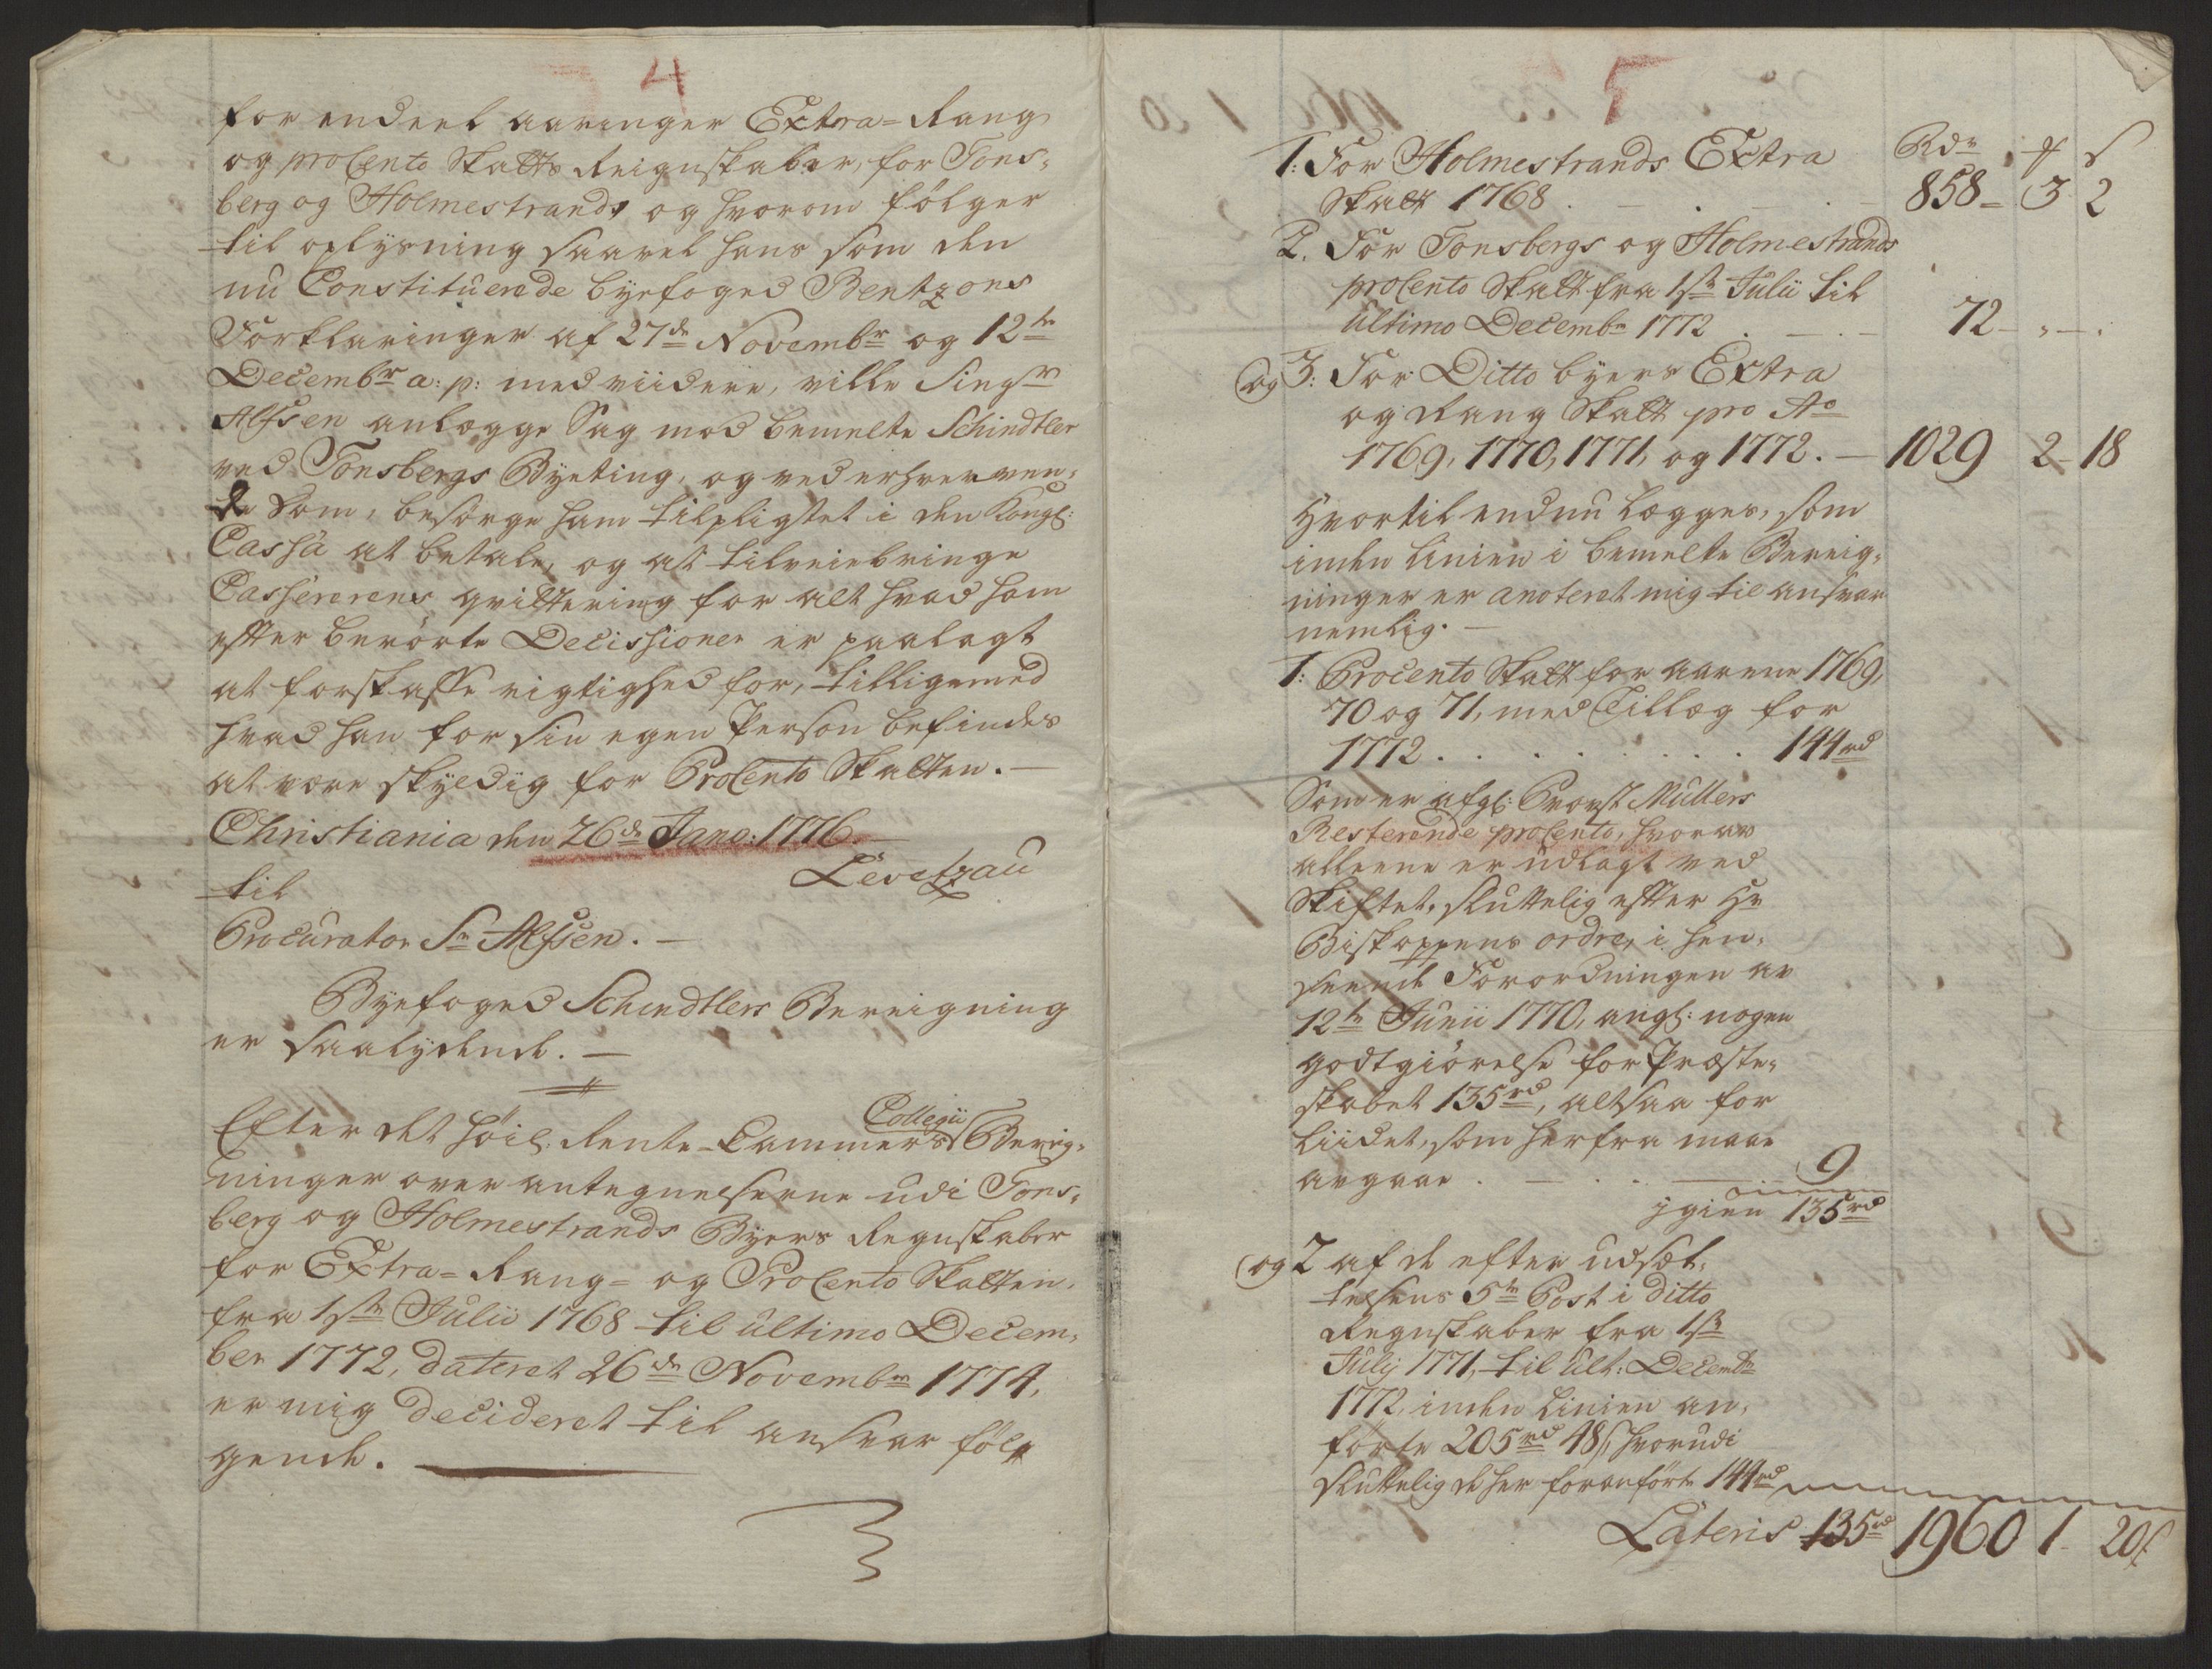 4
for endeel aaringer Extra-Rang
og proCento Skatts Reignskaber, for Tons-
berg og Holmestrands og hvorom følger
til oplysning saavel hans som den
nu Constituerede byefoged Bentzons
Forklaringer af 27de Novembr og 12te
Decembr a: p: med viidere, ville Singr
Alfsen anlægge Sag mod bemelte Schindtler
ved Tonsbergs Byeting, og ved erhverven-
de Dom, besørge ham tilpligtet i den Kongl:
Cassa at betale, og at tilveiebringe
Cassererens qvittering for alt hvad ham
efter berørte Decissioner er paalagt
at forskaffe rigtighed for, tilligemed
hvad han for sin egen Person befindes
at være skyldig for ProCento Skatten. —
Christiania den 26de Janv: 1776.
Levetzau
til
Procurator Sr Alfsen. —
Byefoged Schindtlers Bereigning
er saalydende. —
Efter det höil. Rente-Cammers Collegii Bereig-
ninger over antegnelserne udi Tons-
berg og Holmestrands Byers Regnskaber
for Extra- Rang- og ProCento Skatten,
fra 1ste Julii 1768 til ultimo Decem-
ber 1772, dateret 26de Novembr 1774,
er mig decideret til ansvar føl-
gende.
5
Rdr ff s
1: For Holmestrands Extra
Skatt 1768 . — . — . — 858 - 3 2
2. For Tonsbergs og Holmestrands
proCento Skatt fra 1ste Julii til
ultimo Decembr 1772 . — . — 72 - " - "
og 3: For Ditto byers Extra
og Rang Skatt pro Ao
1769, 1770, 1771, og 1772. — 1029 2 - 18
Hvortil endnu lægges, som
inden Linien i bemelte Bereig-
ninger er anoteret mig til ansvar
nemlig. —
1: Procento Skatt for aarene 1769,
70 og 71, med Tillæg for
1772 . . . . . . . 144rd
Som er afgl: Provst Müllers
Resterende proCento, hvorav
alleene er udlagt ved
Skiftet, sluttelig efter Hr
Biskoppens ordre, i hen-
seende Forordningen av
12te Junii 1770, angl: nogen
godtgiörelse for Præste-
skabet 135rd, altsaa for
liidet, som herfra maae
avgaae . — . . — 9
igien 135rd
og 2 af de efter udsæt-
telsens 5te Post i ditto
Regnskaber fra 1ste
Julij 1771, til ult: Decembr
1772, inden Linien an-
førte 205rd 48s, hvorudi
sluttelig de her foranførte 144rd
Lateris 135rd 1960 1 - 20s